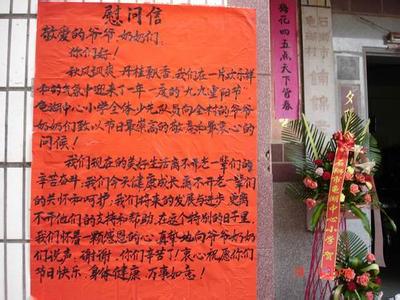 慰问信
敬爱的爷爷奶奶们:
你们好!
秋风飒爽,丹桂飘香,我们在一片欢乐祥
和的气氛中迎来了一年一度的“九九重阳节”
龟湖中心小学全体少先队员向全村的爷爷
奶奶们致以节日最崇高的敬意和最衷心的
问候!
我们现在的美好生活离不开老一辈们的
辛苦奋斗;我们今天健康成长离不开老一辈们
的关怀和呵护;我们将来的发展与进步更离
不开他们的支持和帮助,在这个特别的日子里,
我们怀着一颗感恩的心真挚地向爷爷奶奶
们说声:谢谢,你们辛苦了!衷心祝愿你们
节日快乐,身体健康,万事如意!
梅花四五点天下皆春
石狮龟湖中心小学贺